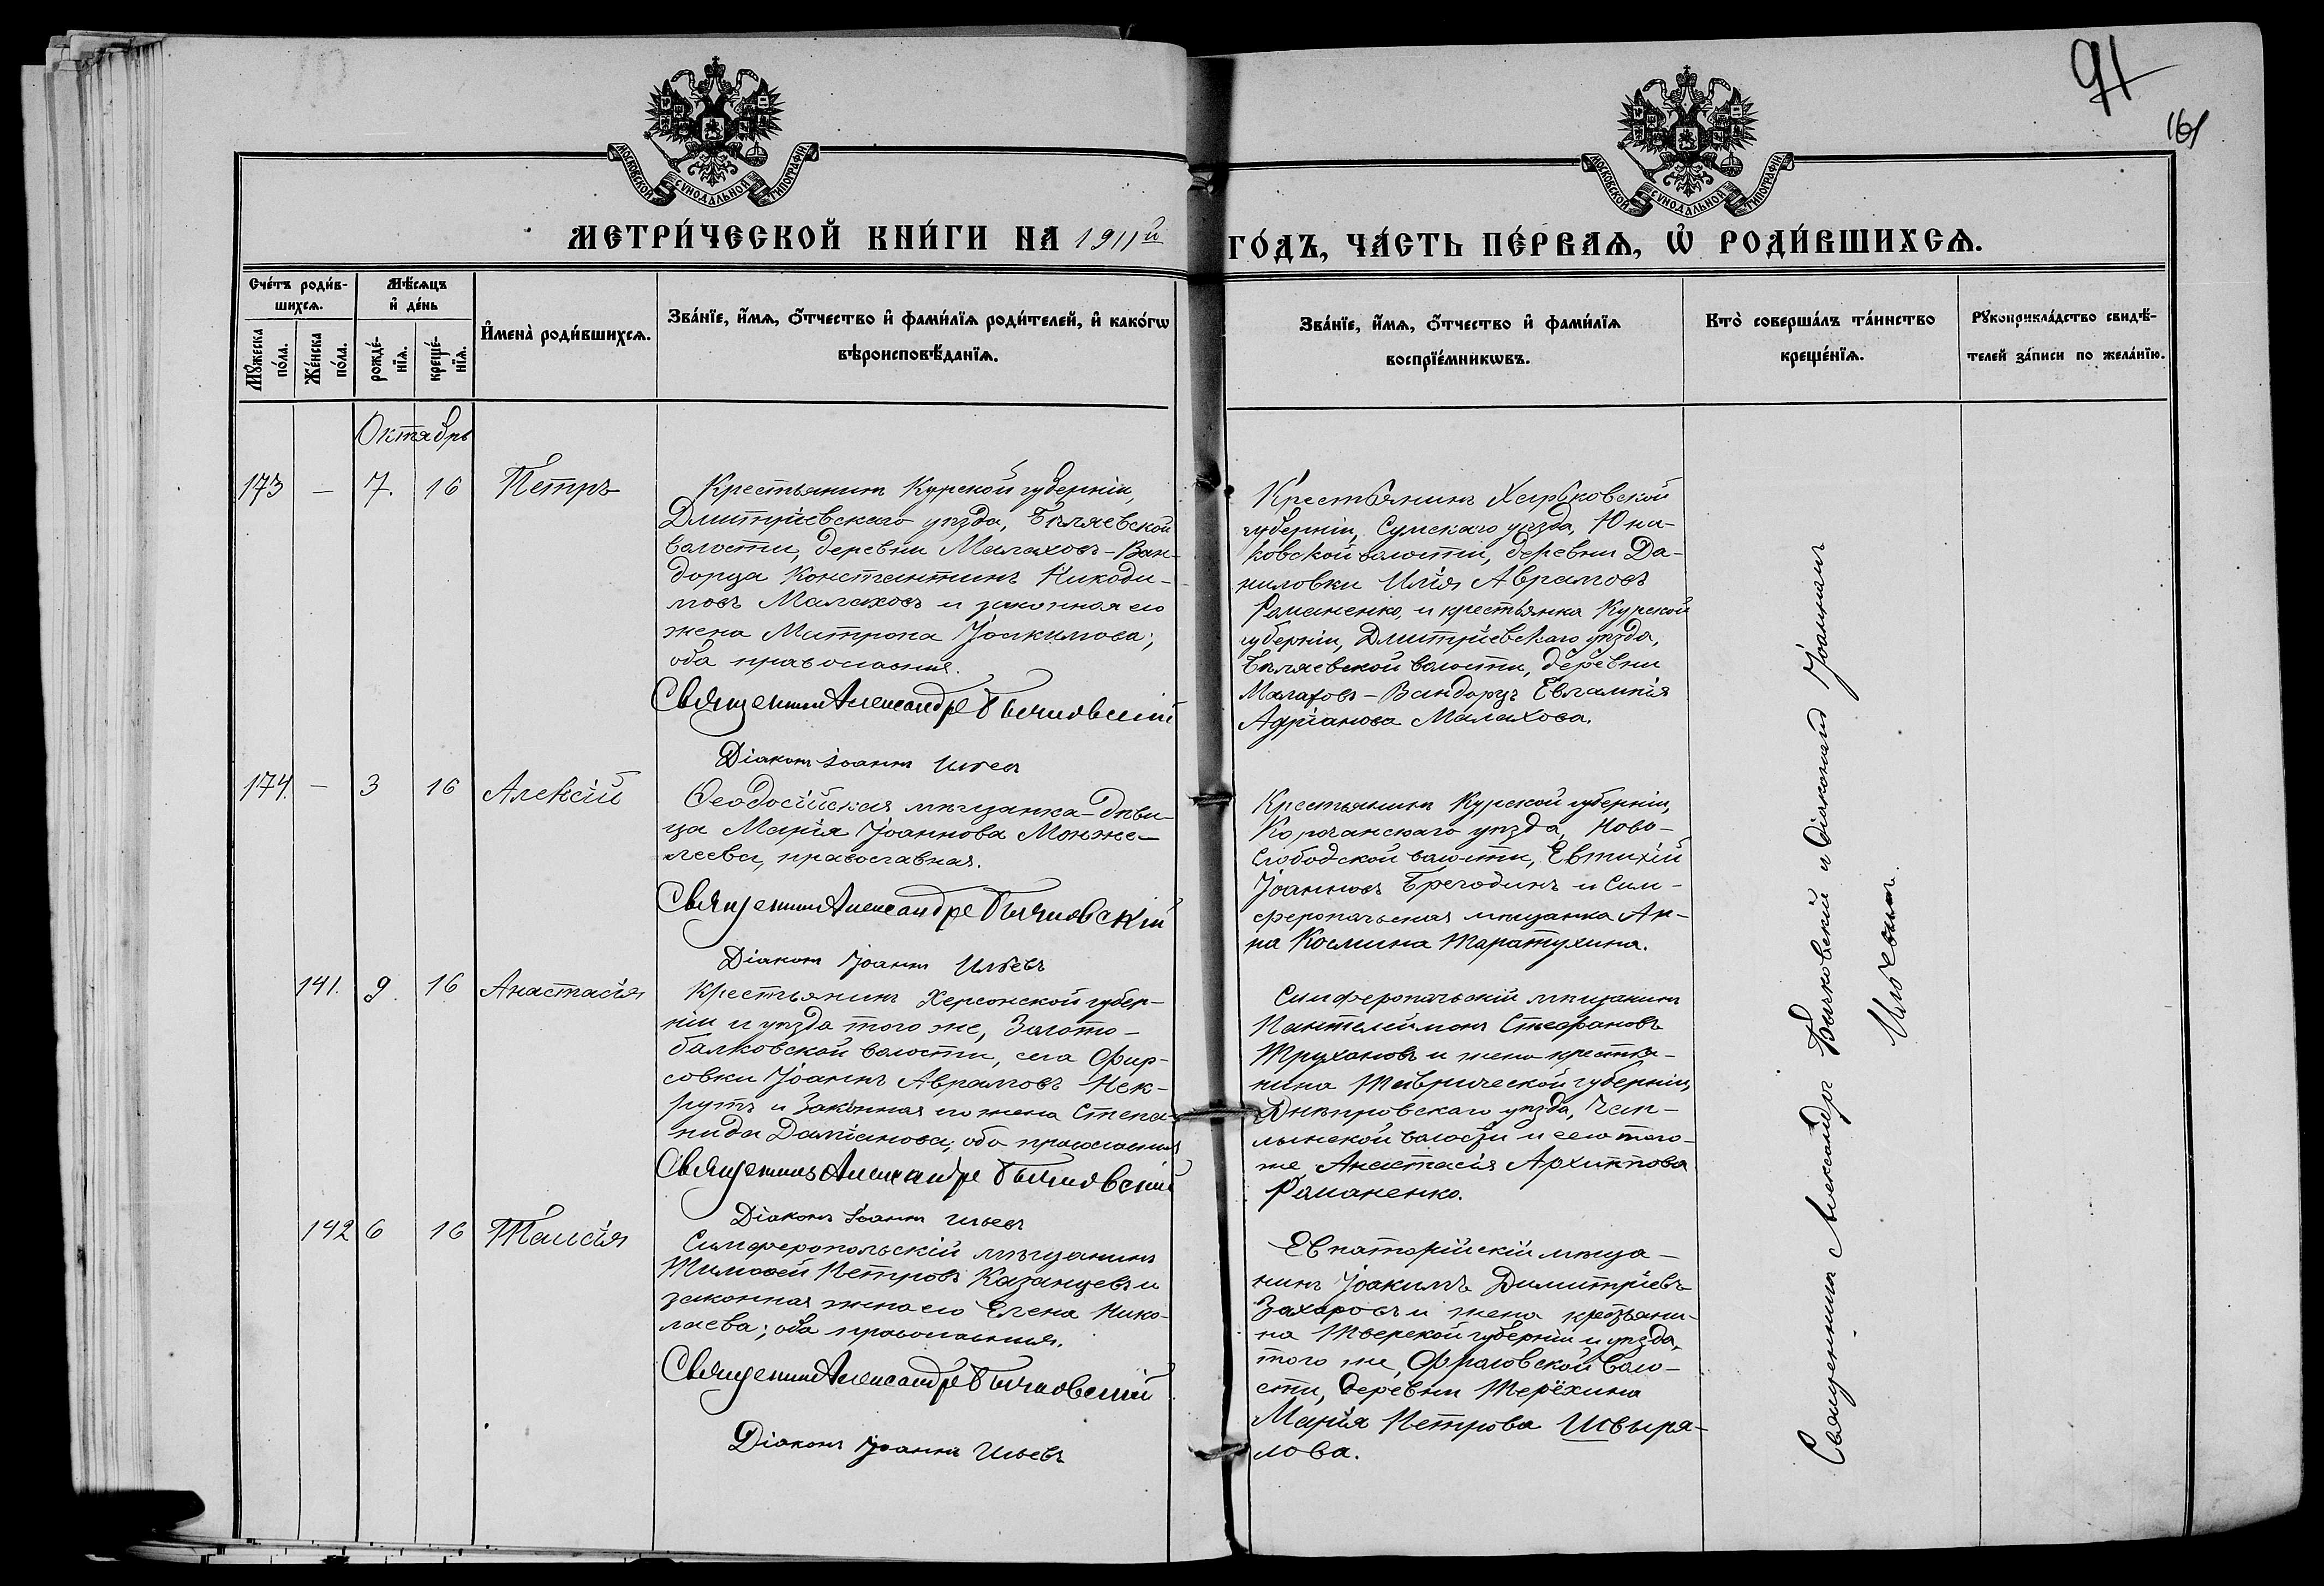 91
161
МОСКОВСКОЙ СѴНОДАЛЬНОЙ ТИПОГРАФІИ
МОСКОВСКОЙ СѴНОДАЛЬНОЙ ТИПОГРАФІИ
МЕТРИ́ЧЕСКОЙ КНИ́ГИ НА 1911й
ГО́ДЪ, ЧА́СТЬ ПЕ́РВАѦ, Ѡ҆ РОДИ́ВШИХСѦ.
Сче́тъ роди́в-
шихсѧ.
Мꙋ́жеска
по́ла.
Же́нска
по́ла.
Мѣ́сѧцъ
и҆ де́нь
рожде́-
нїѧ.
креще́-
нїѧ.
И҆мена̀ роди́вшихсѧ.
Зва́нїе, и҆́мѧ, ѻ҆́тчество и҆ фами́лїѧ роди́телей, и҆ како́гѡ
вѣроисповѣ́данїѧ.
Зва́нїе, и҆́мѧ, ѻ҆́тчество и҆ фами́лїѧ
воспрїе́мникѡвъ.
Кто̀ соверша́лъ та́инство
креще́нїѧ.
Рꙋкоприкла́дство свидѣ́-
телей за́писи по жела́нїю.
Октябрь
173 – 7. 16 Петръ
Крестьянинъ Курской губерніи,
Дмитріевскаго уѣзда, Бѣляевской
волости, деревни Малаховъ-Ван-
дорца Константинъ Никоди-
мовъ Малаховъ и законная его
жена Матрона Іоакимова;
оба православные.
Священникъ Александръ Бычковскій
Діаконъ Іоаннъ Ильевъ
Крестьянинъ Харьковской
губерніи, Сумскаго уѣзда, Юна-
ковской волости, деревни Да-
ниловки Илія Аврамовъ
Романенко, и крестьянка Курской
губерніи, Дмитріевскаго уѣзда,
Бѣляевской волости, деревни
Малаховъ-Вандорцъ Евлампія
Адріанова Малахова.
174. – 3 16 Алексій
Ѳеодосійская мѣщанка-дѣви-
ца Марія Іоаннова Монже-
леева, православная.
Священникъ Александръ Бычковскій
Діаконъ Іоаннъ Ильевъ
Крестьянинъ Курской губерніи,
Корочанскаго уѣзда, Ново-
слободской волости, Евтихій
Іоанновъ Брегодинъ и Сим-
феропольская мѣщанка Ан-
на Космина Таратухина.
141. 9. 16 Анастасія
Крестьянинъ Херсонской губер-
ніи и уѣзда того же, Золото-
балковской волости, села Фир-
совки Іоаннъ Аврамовъ Нек-
рутъ и законная его жена Степа-
нида Даміанова; оба православные
Священникъ Александръ Бычковскій
Діаконъ Іоаннъ Ильевъ
Симферопольскій мѣщанинъ
Пантелеимонъ Стефановъ
Трухановъ и жена крестья-
нина Таврической губерніи,
Днѣпровскаго уѣзда, Чап-
лынской волости и села того-
же Анастасія Архиппова
Романенко.
142 6 16 Таисія
Симферопольскій мѣщанинъ
Тимоѳей Петровъ Казанцевъ и
законная жена его Елена Нико-
лаева; оба православные.
Священникъ Александръ Бычковскій
Діаконъ Іоаннъ Ильевъ
Евпаторійскій мѣща-
нинъ Іоакимъ Димитріевъ
Захаровъ и жена крестьяни-
на Тверской губерніи и уѣзда
того же, волo-
сти, деревни Терёхина
Марія Петрова Швыря-
лова.
Священникъ Александръ Бычковскій и діаконъ Іоаннъ
Ильевъ.